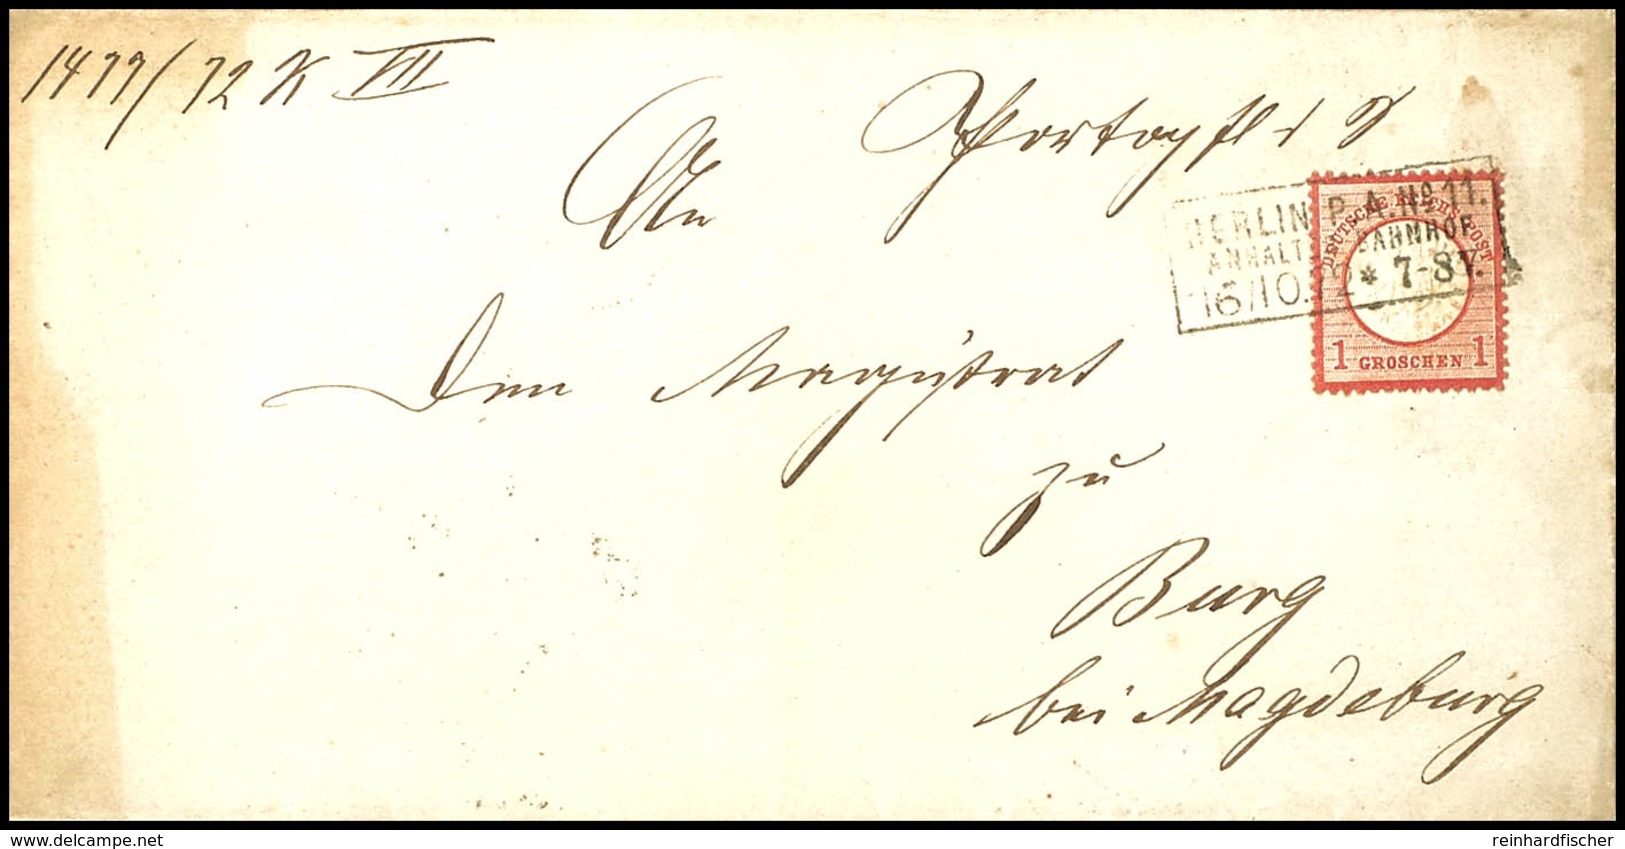 1479/72 K VII
Portopfl. S
An
BERLIN P.A. No. 11.
ANHALT. BAHNHOF
16/10.72 * 7-8 V.
DEUTSCHE REICHS-POST
1 GROSCHEN 1
Den Magistrat
zu
Burg
bei Magdeburg
www.delcampe.net
reinhardfischer